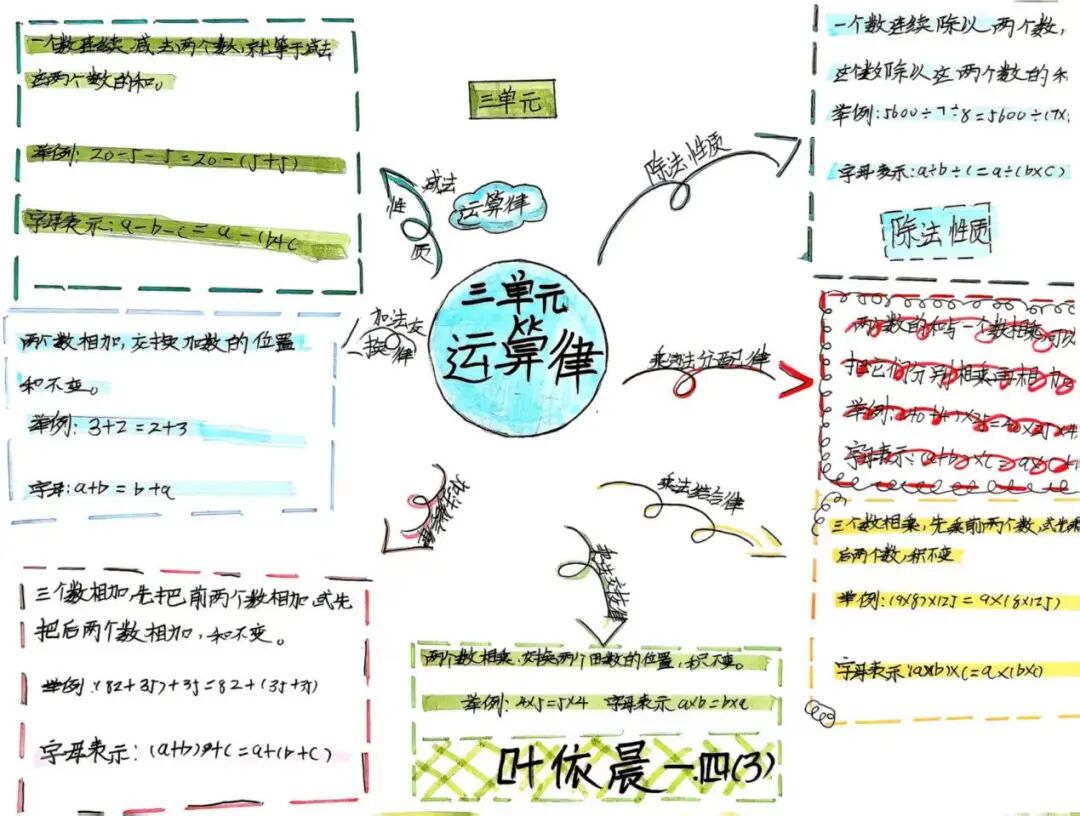 三单元
运算律
三单元
运算律
减法
性
质
一个数连续减去两个数,就等于减去
这两个数的和。
举例: 20-5-5=20-(5+5)
字母表示: a-b-c=a-(b+c
除法性质
一个数连续除以两个数,
这个数除以这两个数的和
举例:5600÷7÷8=5600÷(7×
字母表示:a÷b÷c=a÷(b×c)
除法性质
加法交
换律
两个数相加,交换加数的位置
和不变。
举例: 3+2=2+3
字母:a+b=b+a
乘法分配律
两个数的和与一个数相乘,可以
把它们分别相乘再相加
字母表示:(a+b)×c=a×c+
三个数相加,先把前两个数相加或先
把后两个数相加,和不变。
举例:(82+35)+35=82+(35+
字母表示: (a+b)+c=a+(b+c)
乘法结合律
三个数相乘,先乘前两个数,或先乘
后两个数,积不变
举例:(9×8)×125=9×(8×125)
字母表示(a×b)×c=a×(b×c)
两个数相乘,交换两个因数的位置,积不变。
举例:4×5=5×4 字母表示a×b=b×a
叶依晨一.四(3)